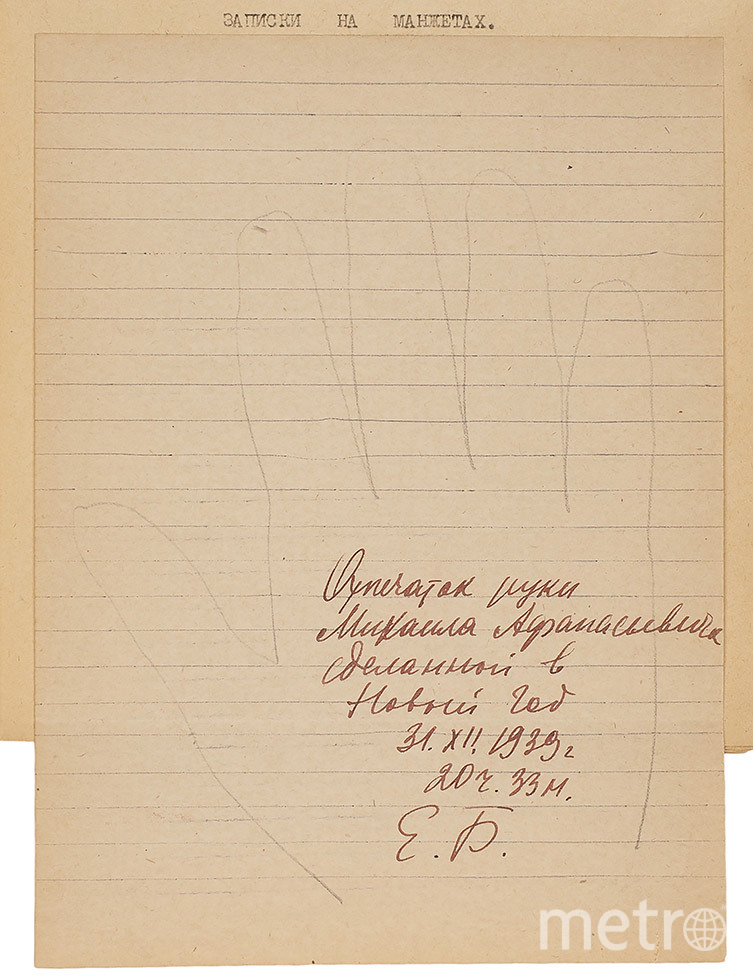 ЗАПИСКИ НА МАНЖЕТАХ.
Отпечаток руки
Михаила Афанасьевича
сделанной в
Новый Год
31.XII.1939г
20ч.33м.
Е.Б.
metro